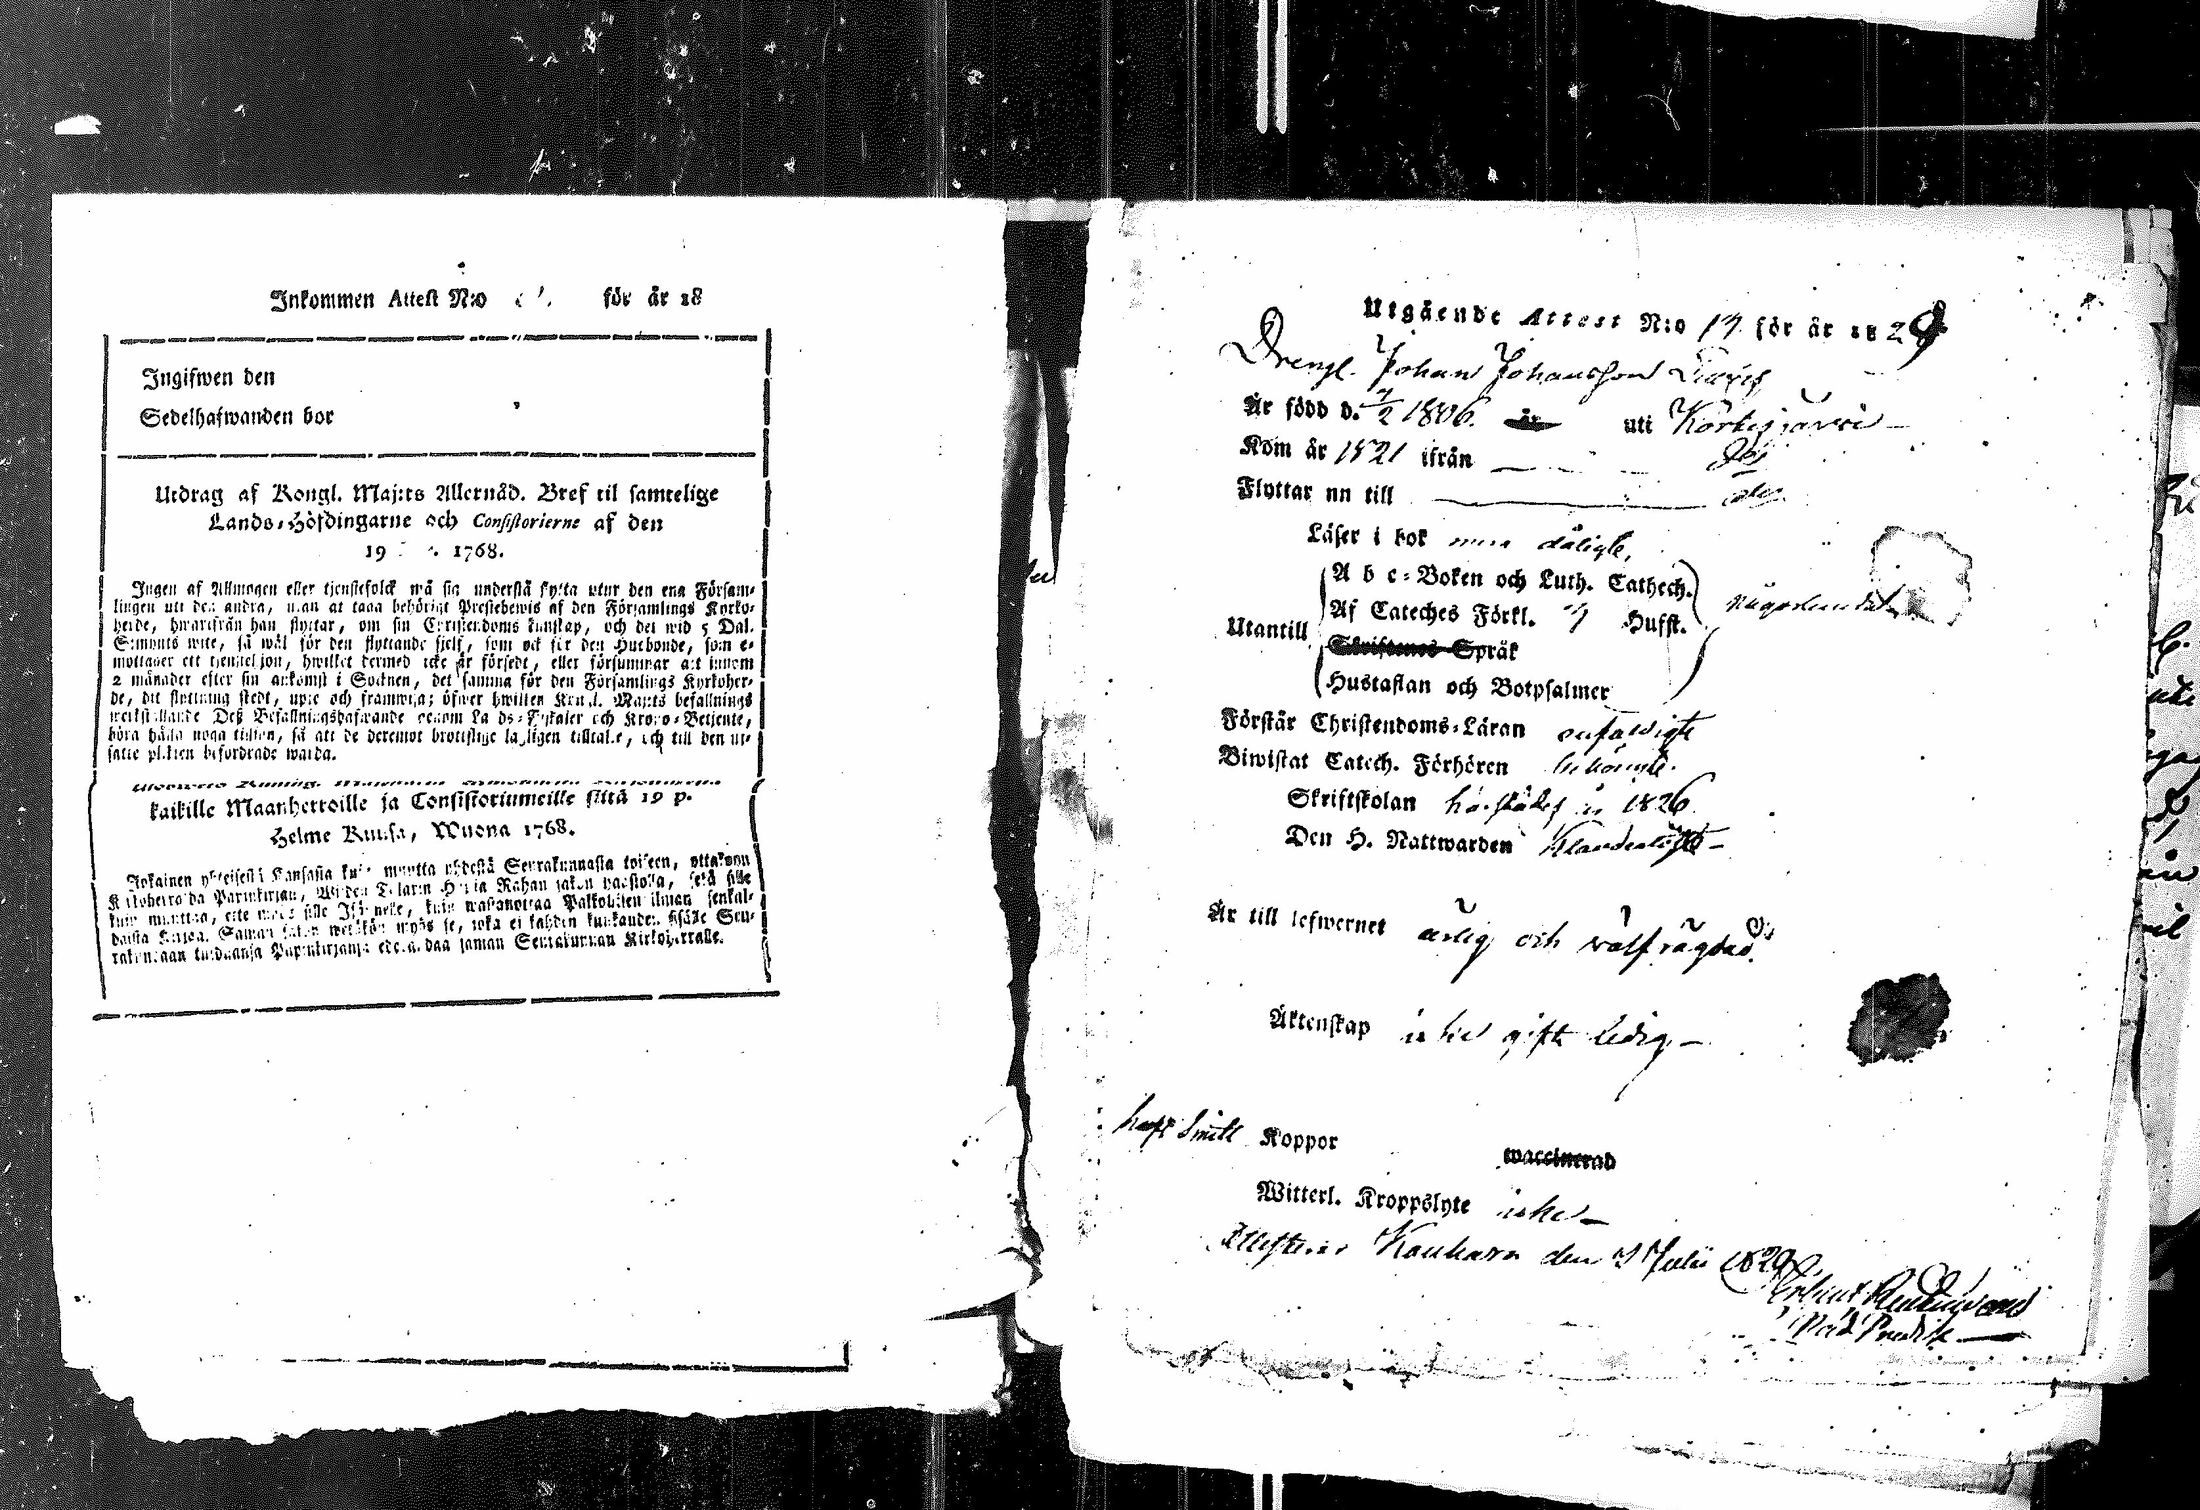 Inkommen Attest N:o för år 18
Ingifwen den
Sedelhafwanden bor
Utdrag af Kongl. Maj:ts Allernåd. Bref til samtelige
Lands-Höfdingarne och Consistorierne af den
19 1768.
Ingen af Allmogen eller tjenstefolck må sig understå flytta utur den ena Försam-
lingen uti den andra, utan at taga behörigt Prestebewis af den Församlings Kyrko-
herde, hwarifrån han flyttar, om sin Christendoms kunskap, och det wid 5 Dal.
S:mynts wite, så wäl för den flyttande sjelf, som ock för den Husbonde, som e-
mottager ett tjenstehjon, hwilket dermed icke är försedt, eller försummar att innom
2 månader efter sin ankomst i Socknen, det samma för den Församlings Kyrkoher-
de, dit flyttning skedt, upte och framwisa; öfwer hwilken Kongl. Maj:ts befallnings
werkställande Deß Befallningshafwande genom Lands-Fiskaler och Krono-Betjente,
böra hålla noga tillsyn, så att de deremot brottslige lagligen tilltalas, och till den ut-
satte plikten befordrade warda.
kaikille Maanherroille ja Consistoriumeille siitä 19 p.
Helme Kuusa, Wuona 1768.
Jokainen yhteisestä Kansasta kuin muutta yhdestä Seurakunnasta toiseen, ottakoon
Kirkoherralda Papinkirjan, Wiiden Talarin Hopia Rahan sakon haastolla, sekä sille
kuin muuttaa, että myös sille Isännälle, kuin wastanottaa Palkollisen ilman senkal-
daista Kirjaa. Saman sakon wetäkön myös se, joka ei kahden kuukauden sisälle Seu-
rakundaan tulduansa Papinkirjansa edesandaa saman Seurakunnan Kirkoherralle.
Utgående Attest N:o 17 för år 1829
Drengl. Johan Johansson
Är född d. 7/2 1806. är uti Kortesjärvi
Kom år 1821 ifrån
Flyttar nu till
Läser i bok dåligt,
A b c-Boken och Luth. Cathech.
Af Cateches Förkl. Hufst. någorlunda
Utantill
Skriftenes Språk
Hustaflan och Botpsalmer
Förstår Christendoms-Läran enfaldigt
Biwistat Catech. Förhören behörigt.
Skriftskolan 1826
Den H. Nattwarden Klanderlöst
Är till lefwernet ärlig och wälfrägdad.
Äktenskap icke gift ledig
haft Smitt Koppor waccinerad
Witterl. Kroppslyte icke
Attesterar Kauhava den 7 Julii 1829.